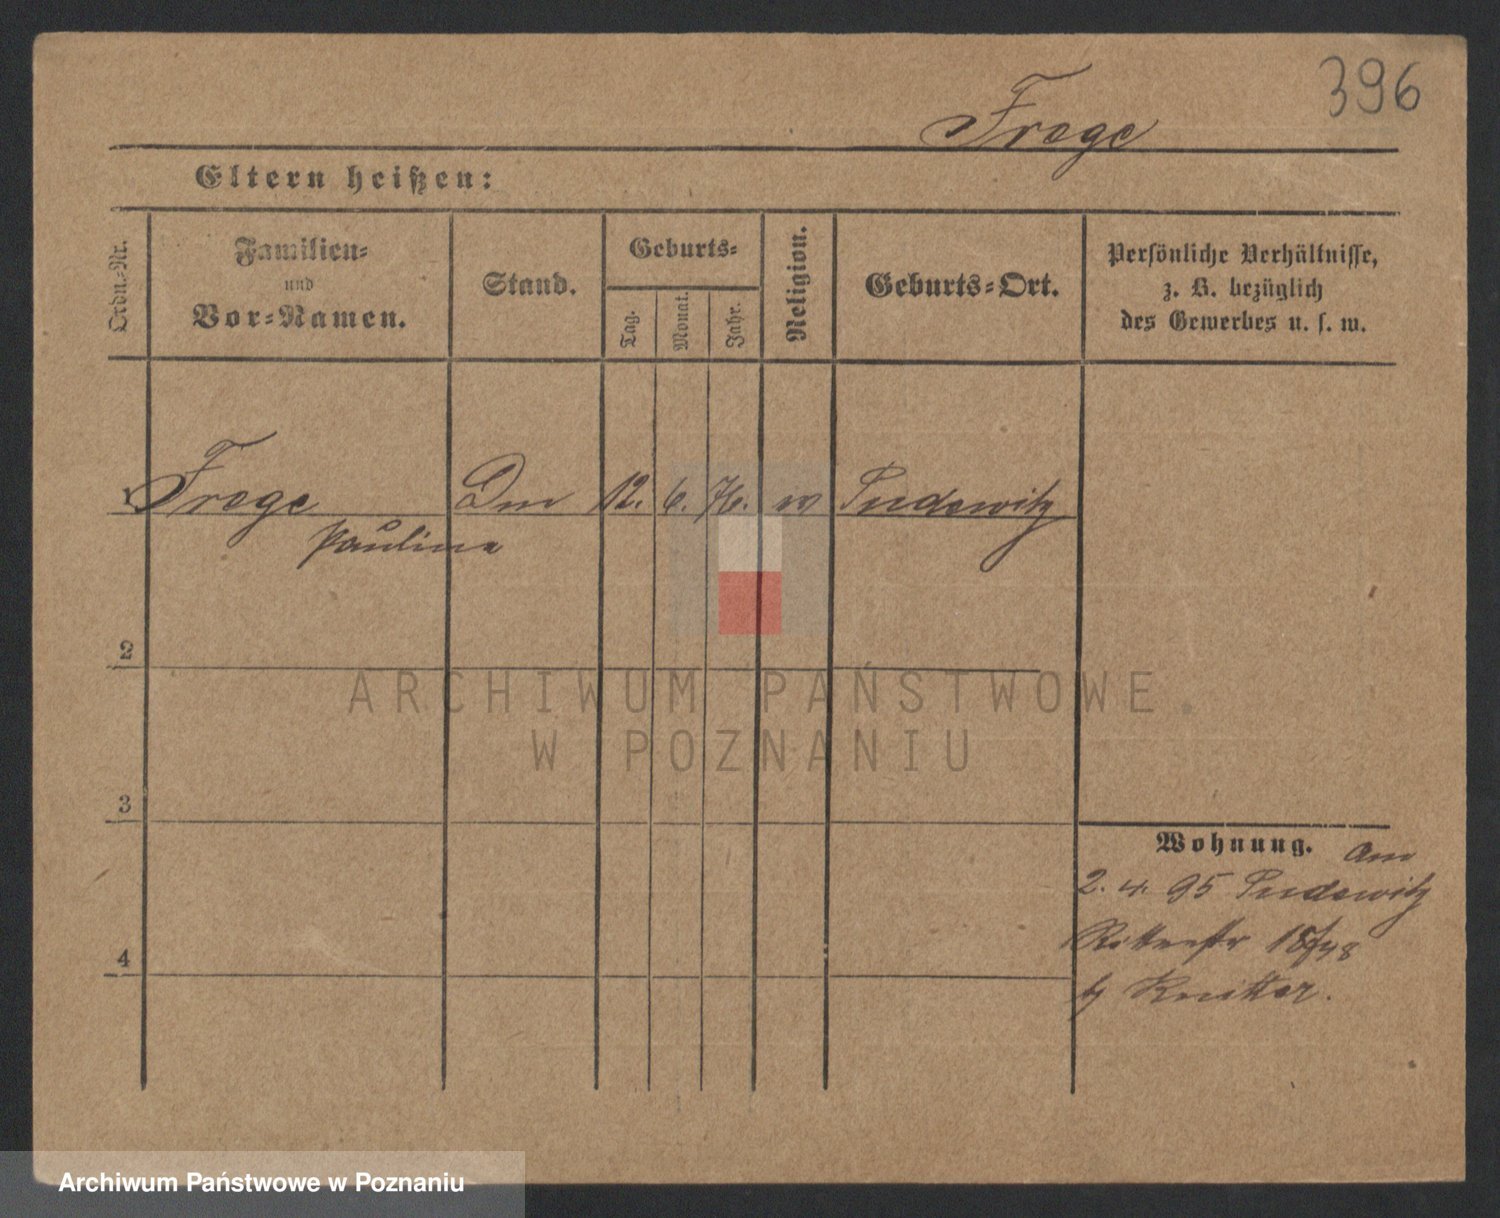 396
Frege
Eltern heißen:
Ordn.-Nr.
Familien-
und
Vor-Namen.
Stand.
Geburts-
Tag.
Monat.
Jahr.
Religion.
Geburts-Ort.
Persönliche Verhältnisse,
z. B. bezüglich
des Gewerbes u. s. w.
1 Frege 12. 6. 76. Pudewitz
Pauline
2
ARCHIWUM PAŃSTWOWE
W POZNANIU
3
Wohnung. Am
2. 4. 95 Pudewitz
Ritterstr
4
Archiwum Państwowe w Poznaniu